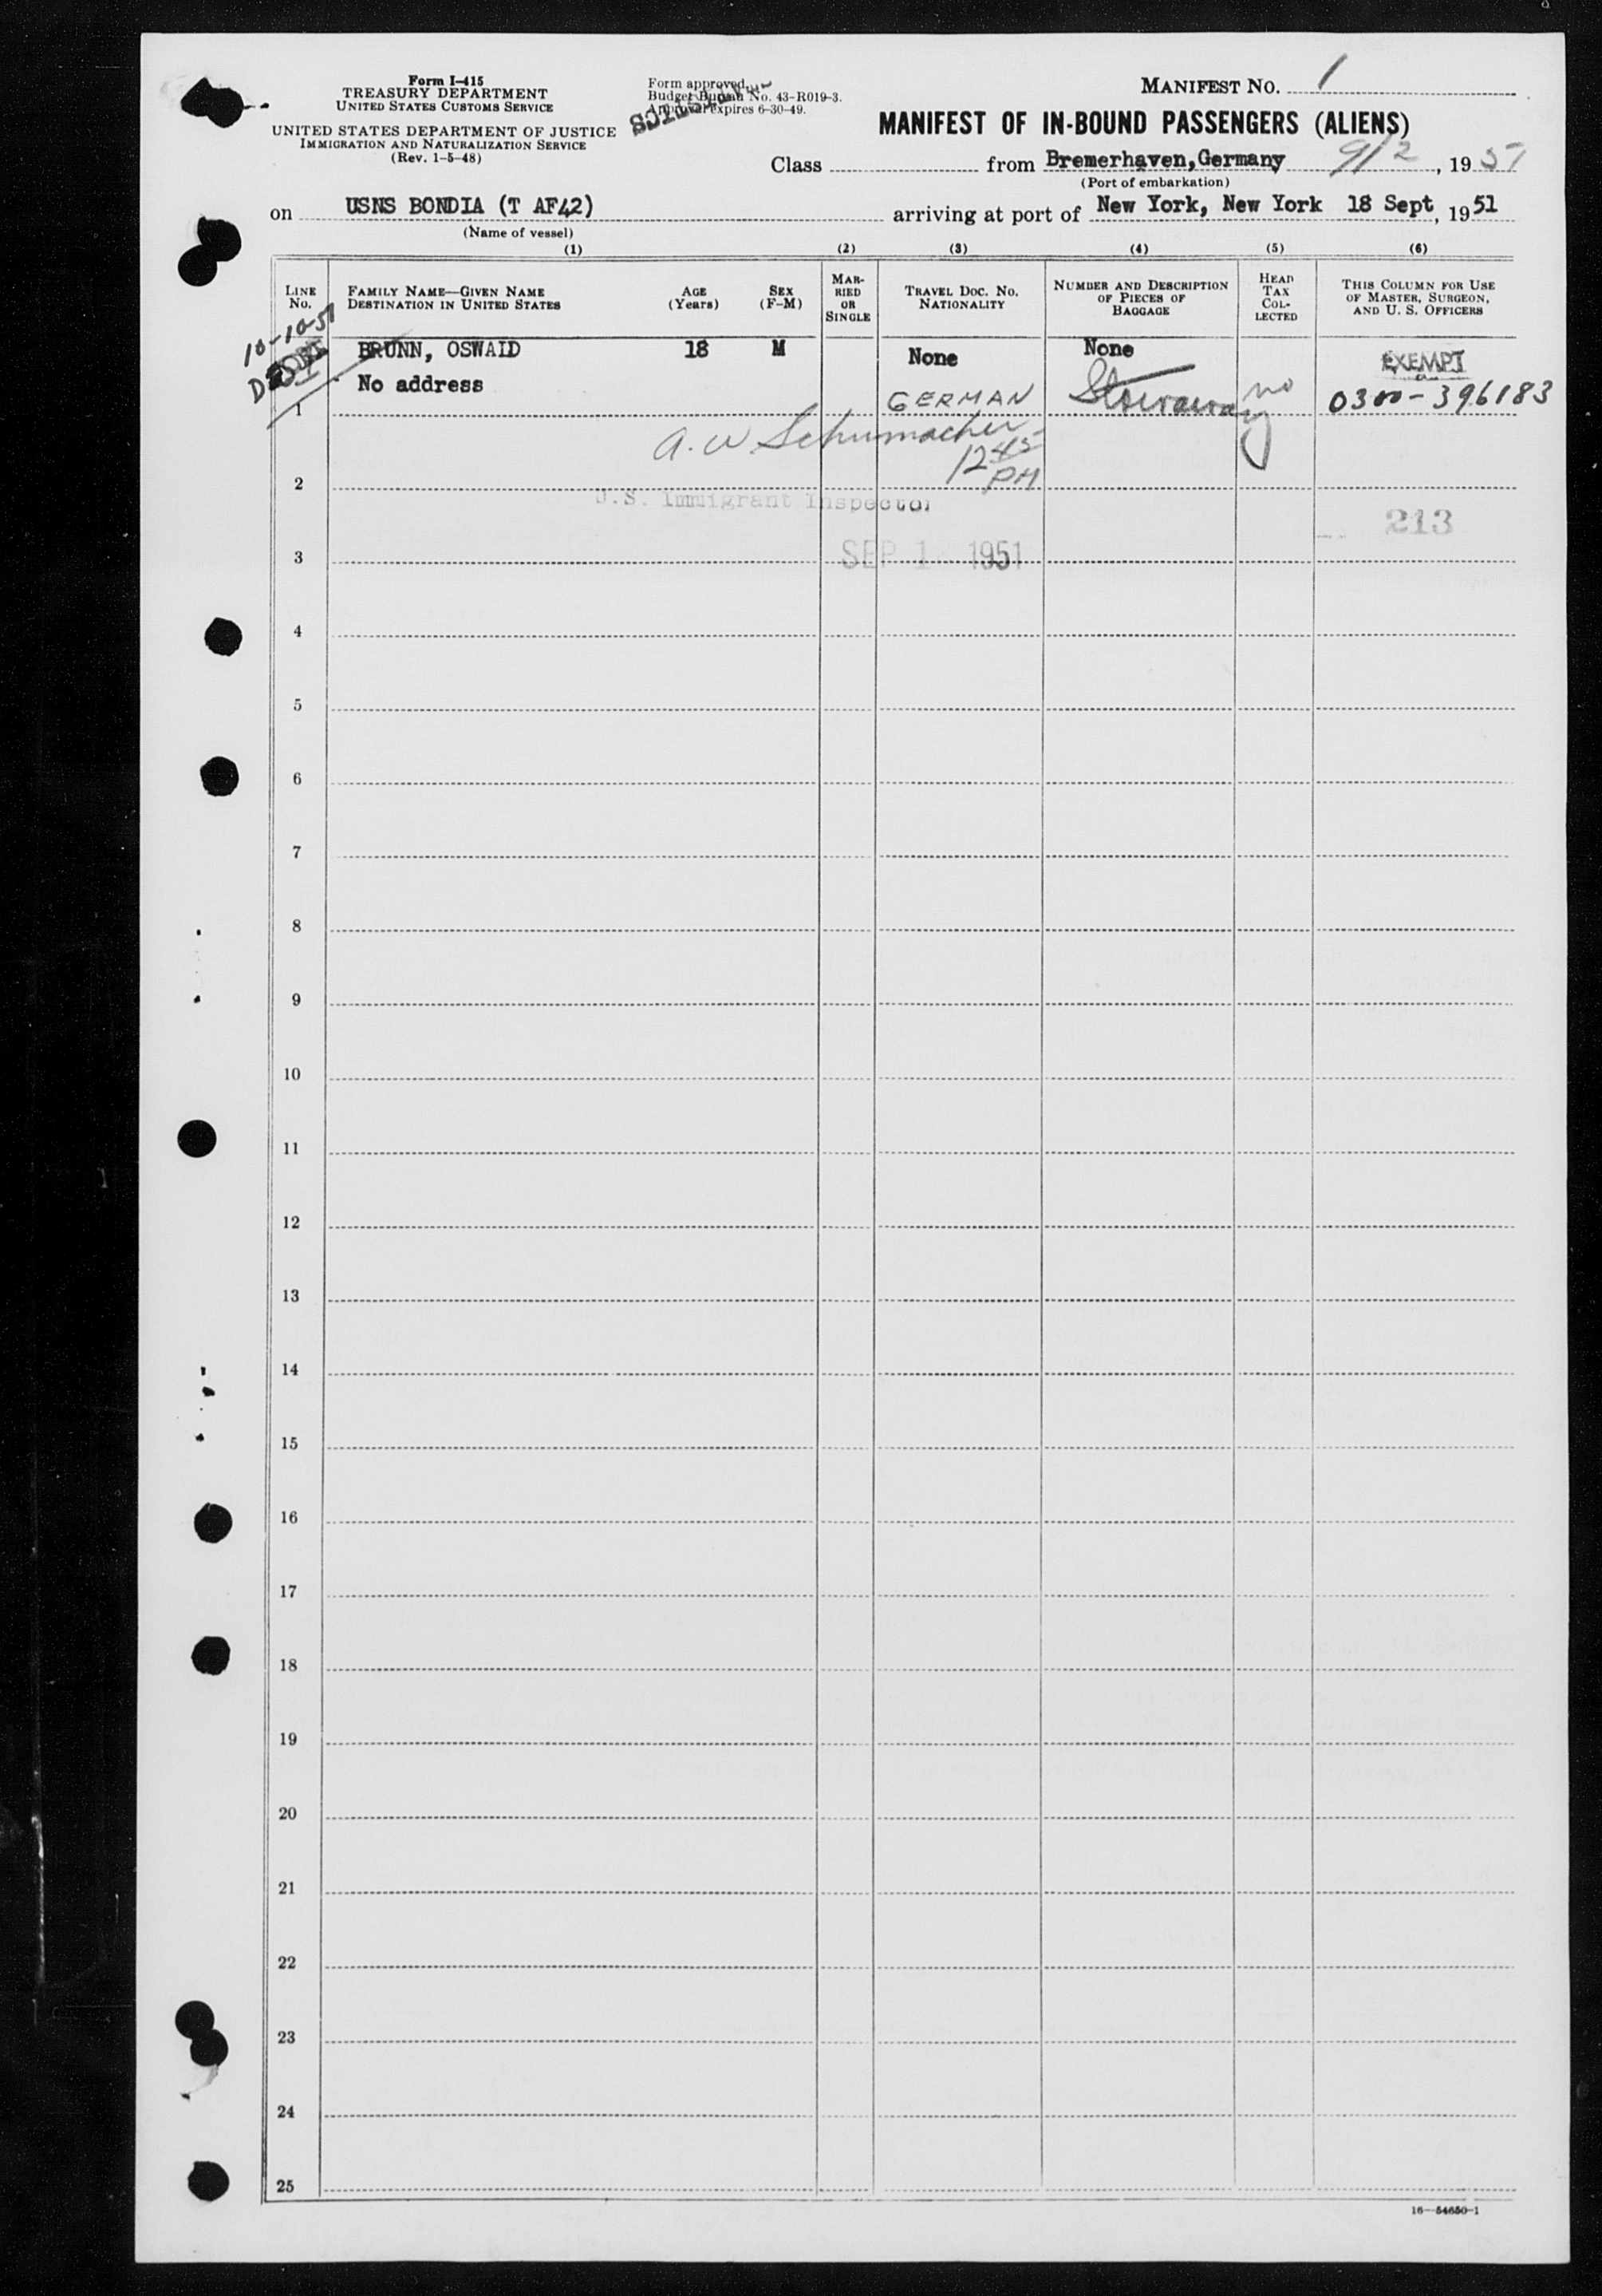 Form I-415
TREASURY DEPARTMENT
UNITED STATES CUSTOMS SERVICE
UNITED STATES DEPARTMENT OF JUSTICE
IMMIGRATION AND NATURALIZATION SERVICE
(Rev. 1-5-48)
Form approved.
Budget Bureau No. 43-R019-3.
Approval expires 6-30-49.
MANIFEST NO. 1
MANIFEST OF IN-BOUND PASSENGERS (ALIENS)
Class from Bremerhaven, Germany 9/2, 1951
(Port of embarkation)
on USNS BONDIA (T AF42) arriving at port of New York, New York 18 Sept, 1951
(Name of vessel)
(1) (2) (3) (4) (5) (6)
LINE No.
FAMILY NAME—GIVEN NAME
DESTINATION IN UNITED STATES
AGE (Years)
SEX (F-M)
MARRIED OR SINGLE
TRAVEL DOC. NO. NATIONALITY
NUMBER AND DESCRIPTION OF PIECES OF BAGGAGE
HEAD TAX COLLECTED
THIS COLUMN FOR USE OF MASTER, SURGEON, AND U. S. OFFICERS
10-10-51
BRUNN, OSWALD 18 M None None EXEMPT
No address
1 GERMAN Stowaway no 0300-396183
A. W. Schumacher
12 45 PM
2
U.S. Immigrant Inspector
213
3 SEP 1 1951
4
5
6
7
8
9
10
11
12
13
14
15
16
17
18
19
20
21
22
23
24
25
16—54650-1